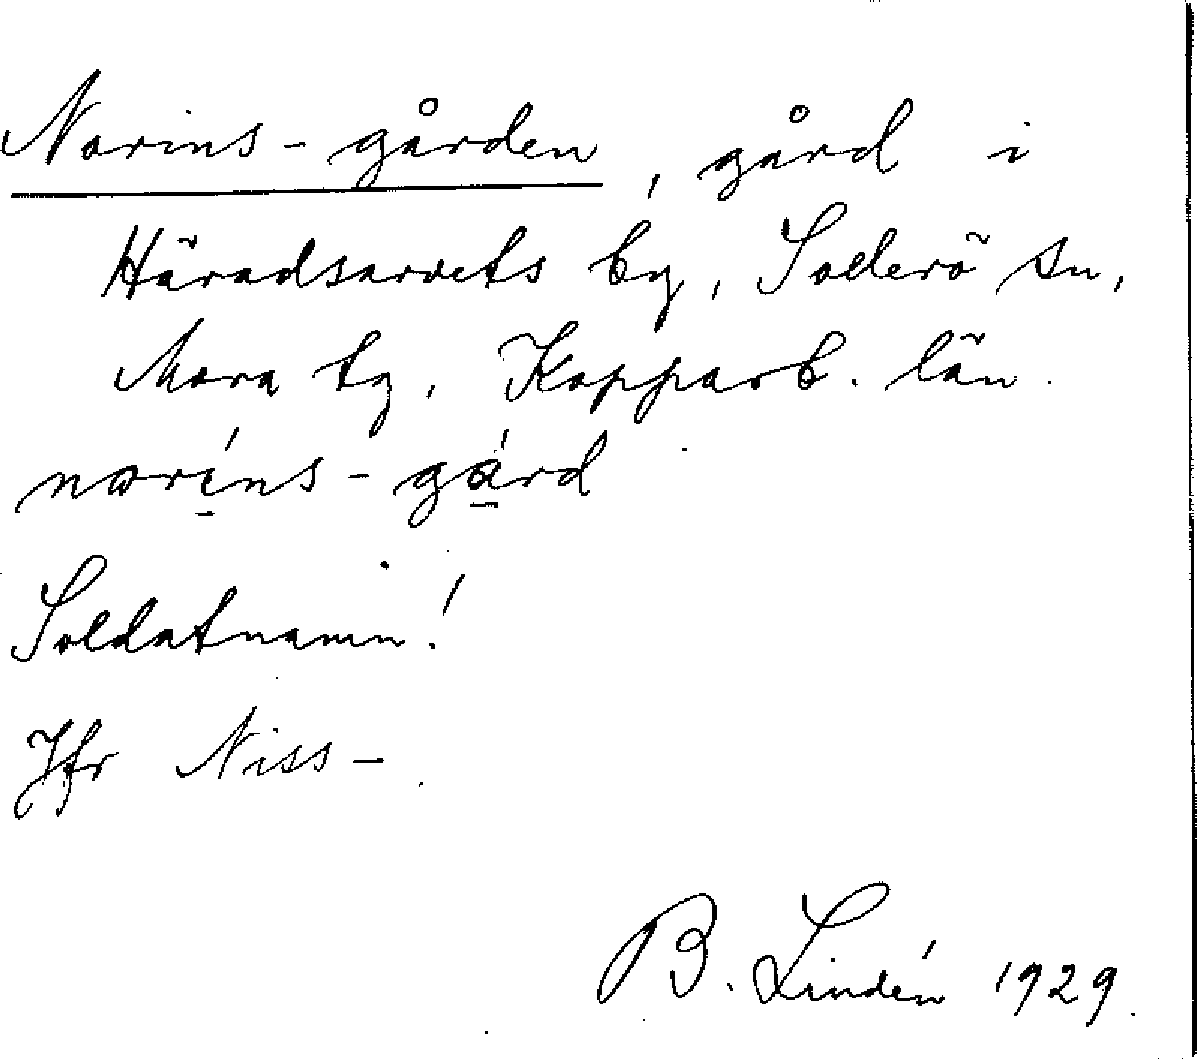 Norins-gården, gård i
Häradsarvets by, Sollerö sn,
Mora tg, Kopparb. län.
noríns-gárd
Soldatnamn!
Jfr Niss-
B. Lindén 1929.